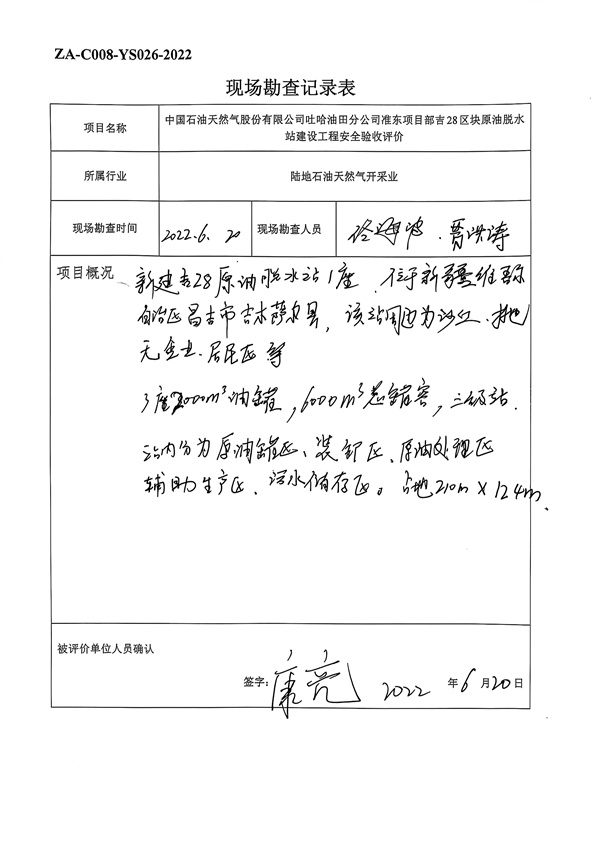 ZA-C008-YS026-2022
现场勘查记录表
项目名称
中国石油天然气股份有限公司吐哈油田分公司准东项目部吉28区块原油脱水
站建设工程安全验收评价
所属行业
陆地石油天然气开采业
现场勘查时间
2022.6. 20
现场勘查人员
徐海波、曹洪涛
项目概况
新建吉28原油脱水站1座,位于新疆维吾尔
自治区昌吉市吉木萨尔县,该站周边为沙丘、
无企业、居民区等
3座2000m³油罐,6000m³总罐容,三级站.
站内分为原油罐区、装卸区、原油处理区
辅助生产区、污水储存区。占地210m×124m.
被评价单位人员确认
签字:康亮 2022 年6月20日